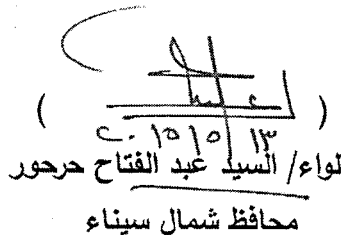 ( )
٢٠١٥/٥/١٣
لواء/ السيد عبد الفتاح حرحور
محافظ شمال سيناء